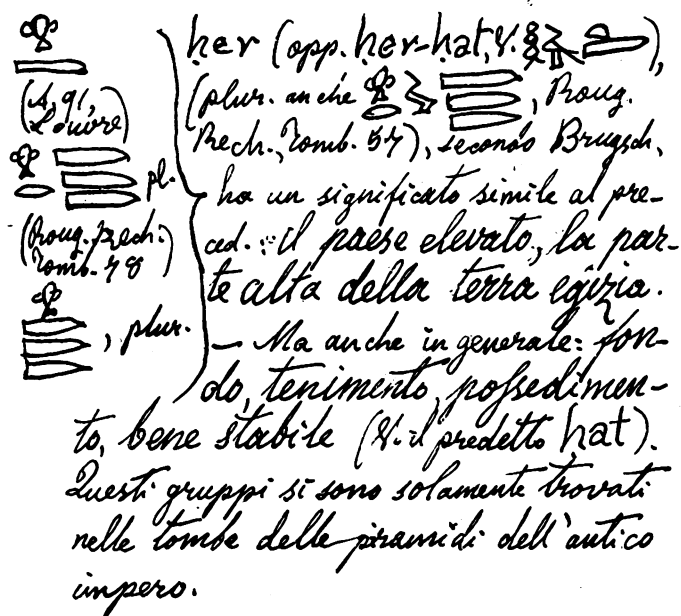 ḥer (opp. ḥer-ḥat, V. ),
(A, 91, Louvre)
(plur. anche , Roug.
Rech., Tomb. 57), secondo Brugsch,
pl.
ha un significato simile al pre-
(Roug. Rech. Tomb. 48
ced.: il paese elevato, la par-
te alta della terra egizia.
, plur.
— Ma anche in generale: fon-
do, tenimento, possedimen-
to, bene stabile (V. il predetto ḥat).
Questi gruppi si sono solamente trovati
nelle tombe delle piramidi dell'antico
impero.